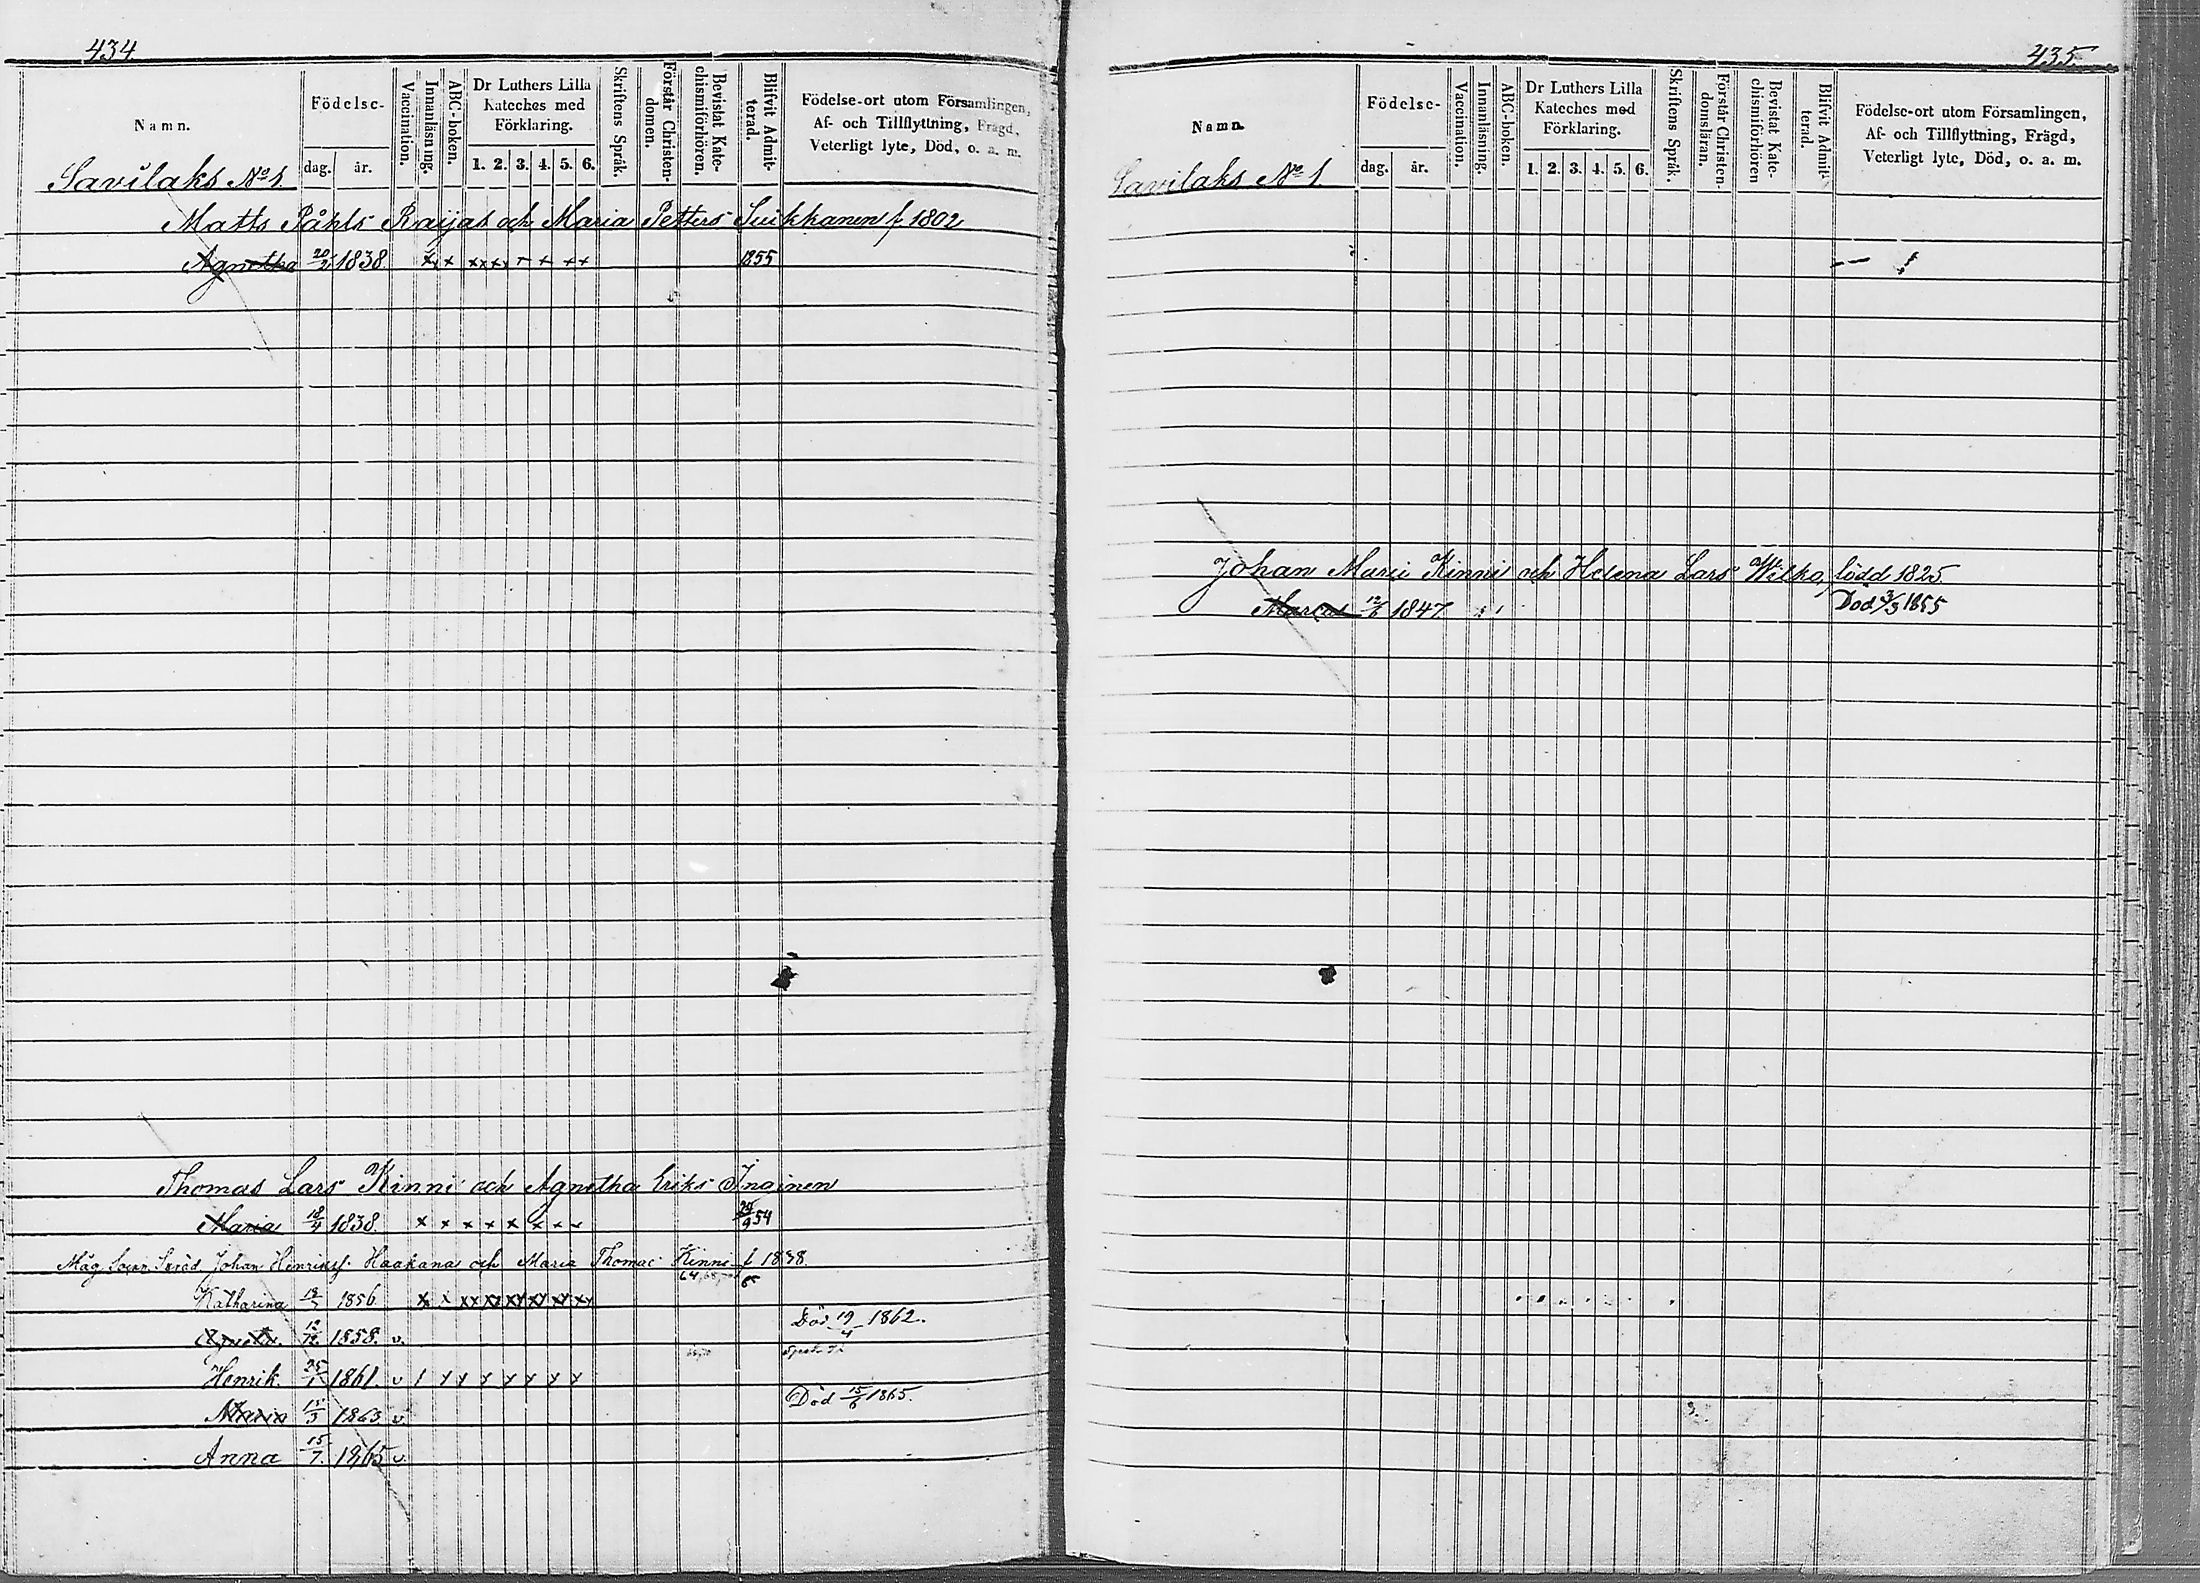 434.
Namn.
Födelse-
dag. år.
Vaccination.
Innanläsning.
ABC-boken.
Dr Luthers Lilla
Kateches med
Förklaring.
1. 2. 3. 4. 5. 6.
Skriftens Språk.
Förstår Christen-
domen.
Bevistat Kate-
chismiförhören.
Blifvit Admit-
terad.
Födelse-ort utom Församlingen,
Af- och Tillflyttning, Frägd,
Veterligt lyte, Död, o. a. m.
Savilaks No 1.
Matts Påhls Raijas och Maria Petters Suikkanen f. 1802
Agnetha 20/2 1838. 1855
Thomas Lars Kinni och Agnetha Eriks Inginen
Maria 18/4 1838. 24/9 54
Måg Johan Henriks Haakana och Maria Thomas Kinni f 1838.
Katharina 1856
12/12 1858. v. Död 19/4 1862.
Henrik 25/1 1861. v
Maria 15/3 1863 v Död 15/6 1865.
Anna 15/7. 1865 v.
435.
Namn.
Födelse-
dag. år.
Vaccination.
Innanläsning.
ABC-boken.
Dr Luthers Lilla
Kateches med
Förklaring.
1. 2. 3. 4. 5. 6.
Skriftens Språk.
Förstår Christen-
domsläran.
Bevistat Kate-
chismiförhören
Blifvit Admit-
terad.
Födelse-ort utom Församlingen,
Af- och Tillflyttning, Frägd,
Veterligt lyte, Död, o. a. m.
Savilaks No 1.
Johan Kinni och Helena Lars Wilko, född 1825.
Marcus 12/6 1847. Död 3/3 1855